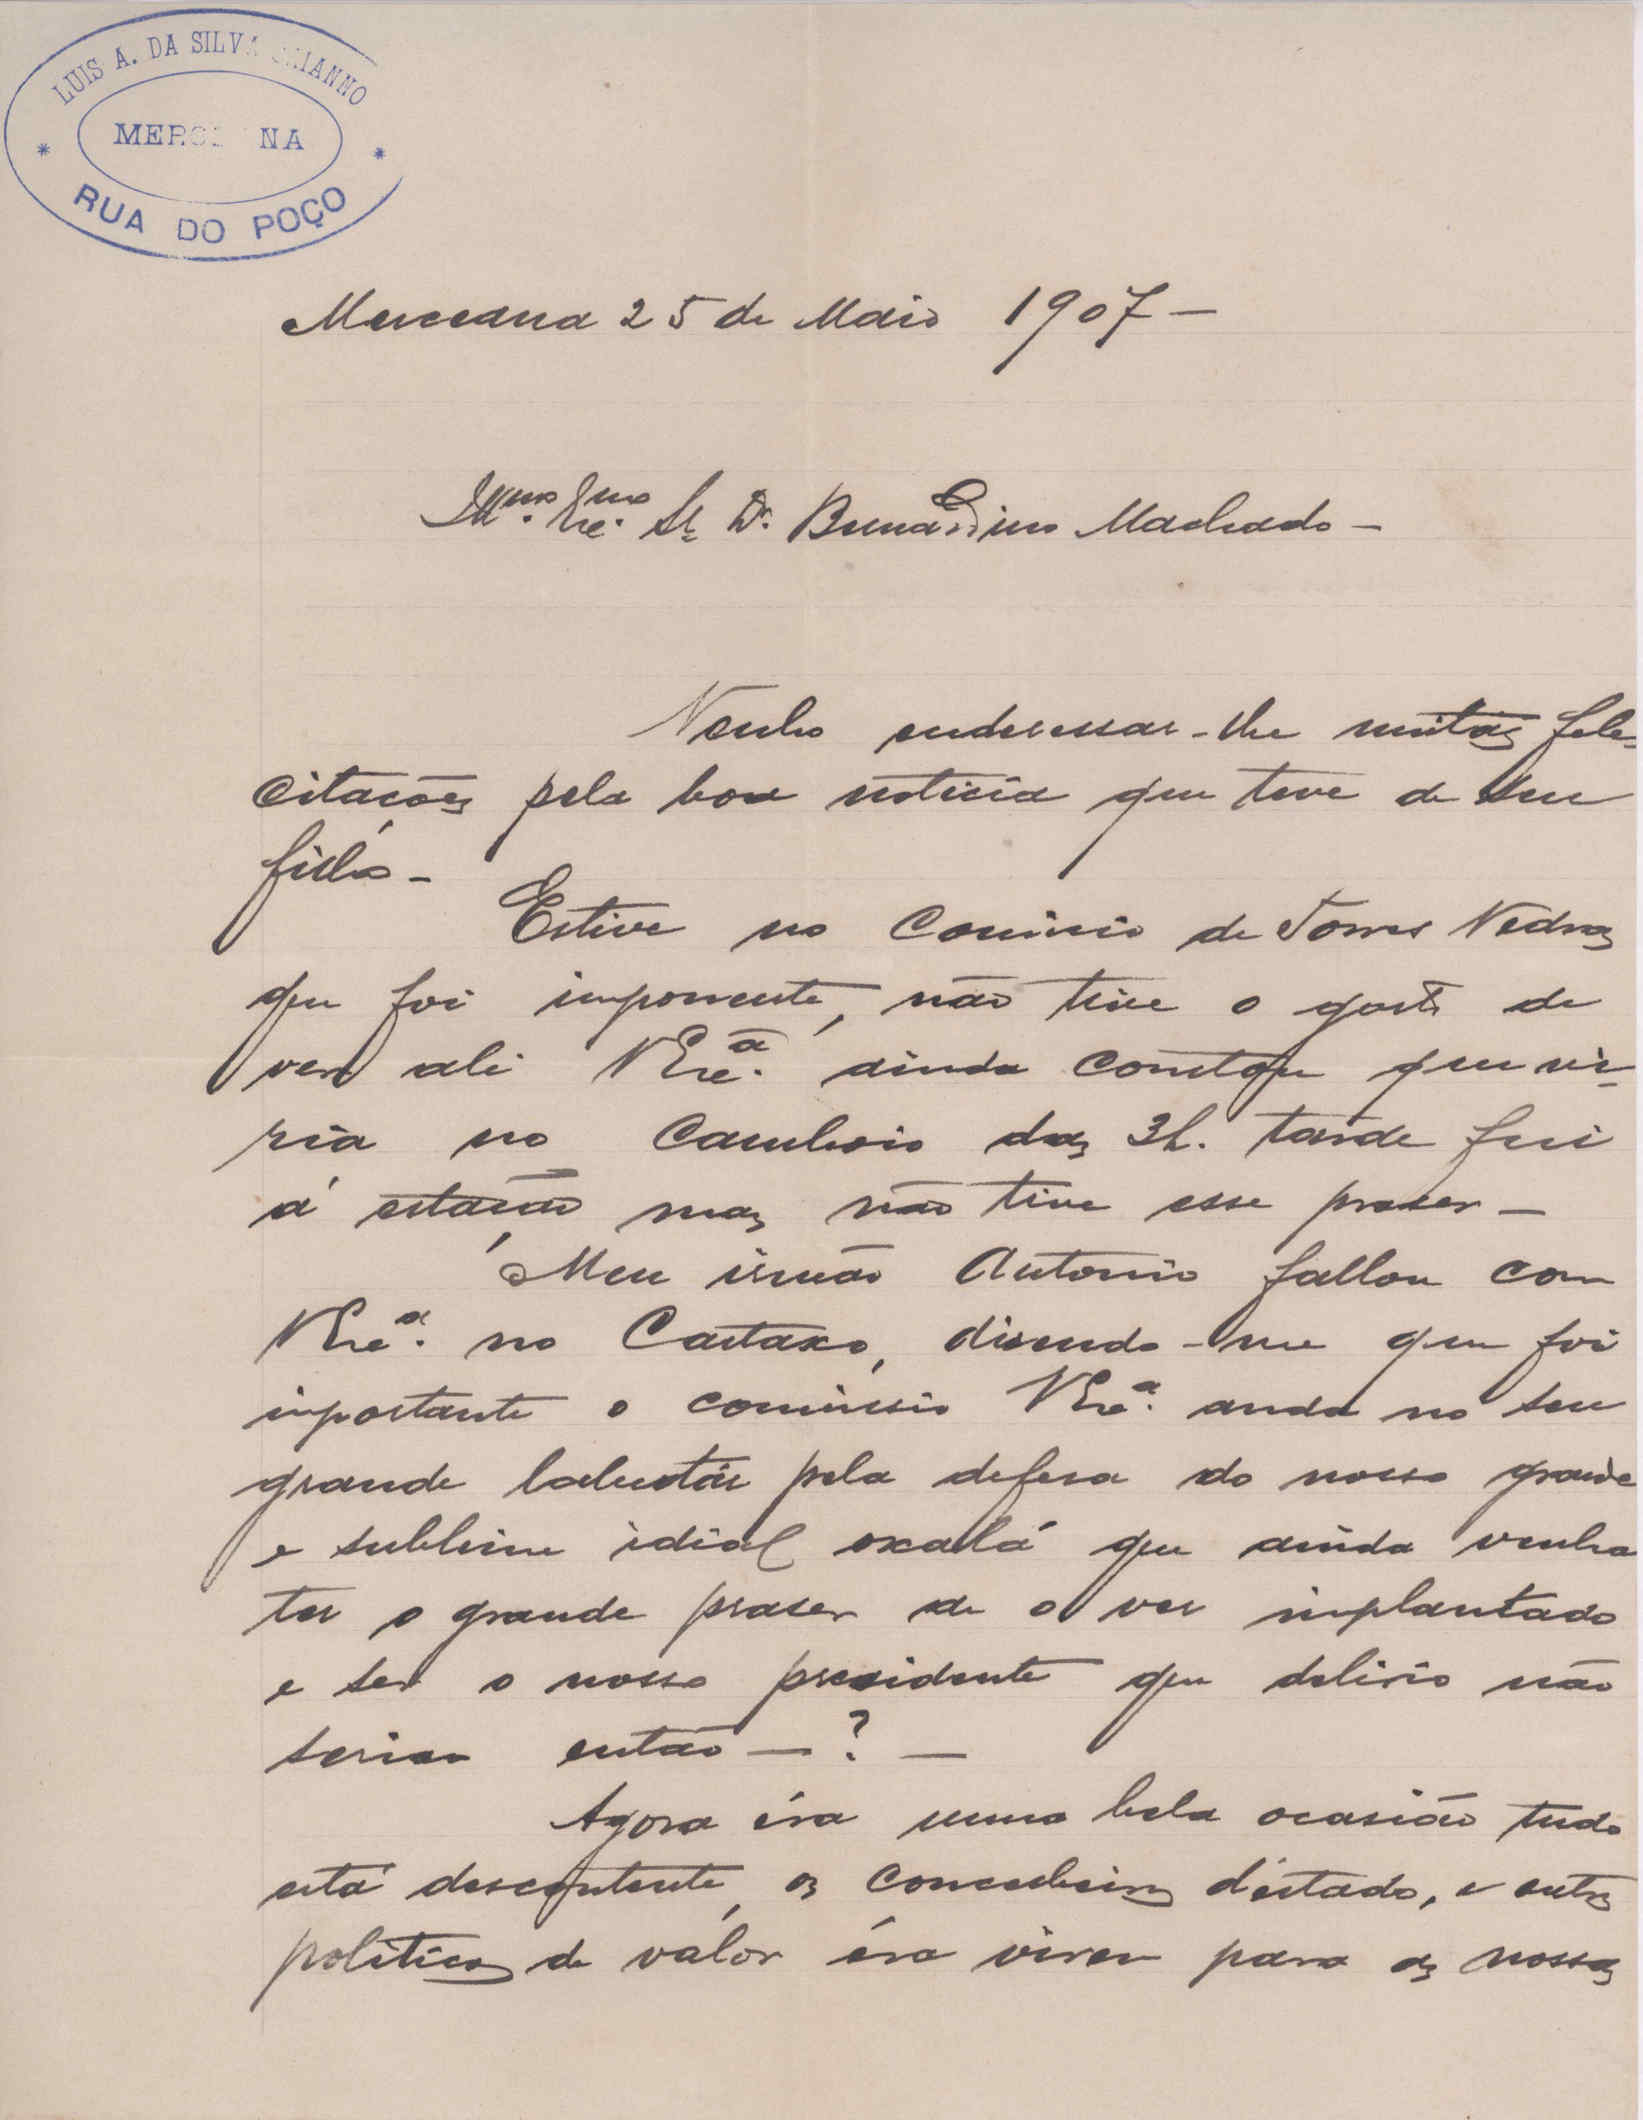 LUIS A. DA SILVA
MERCEANA
RUA DO POÇO
Merceana 25 de Maio 1907 —
Illmo. Exmo. Sr. Dr. Bernardino Machado —
Venho enderessar-lhe muitas fele-
citações pela boa noticia que teve de seu
filho —
Estive no Comicio de Torres Vedras
que foi imponente, não tive o gosto de
ver ali V Exca. ainda constou que vi-
ria no Camboio das 3h. tarde fui
á estação mas não tive esse praser —
Meu irmão Antonio fallou com
V Exca. no Cartaxo, disendo-me que foi
importante o comissio V Exa. anda no seu
grande labutár pela defesa do nosso grande
e sublime idial oxalá que ainda venha
ter o grande praser de o ver implantado
e ser o nosso presidente que delirio não
seria então — ? —
Agora éra uma bela ocasião tudo
está descontente, os conselheiros d'estado, e outros
politicos de valôr éra virem para as nossas